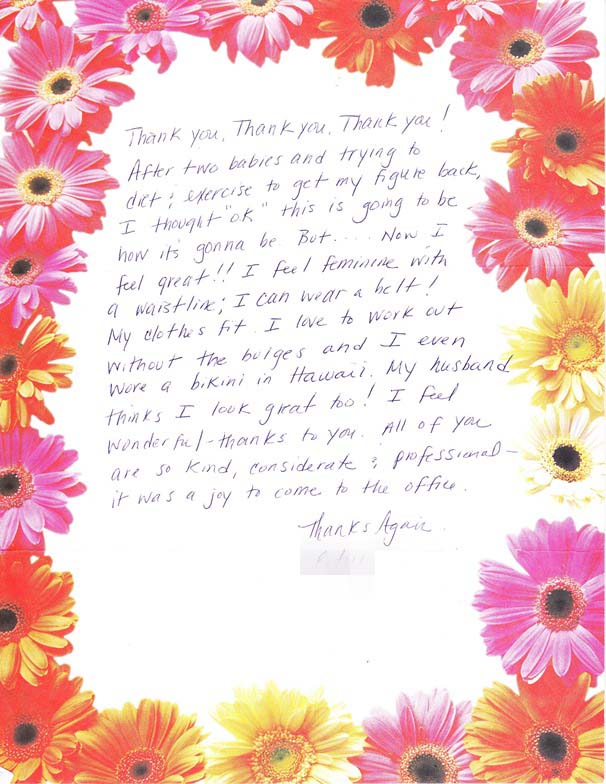 Thank you, Thank you, Thank you!
After two babies and trying to
diet & exercise to get my figure back,
I thought "ok" this is going to be
how it's gonna be. But.... Now I
feel great!! I feel feminine with
a waistline; I can wear a belt!
My clothes fit. I love to work out
without the bulges and I even
wore a bikini in Hawaii. My husband
thinks I look great too! I feel
wonderful - thanks to you. All of you
are so kind, considerate & professional -
it was a joy to come to the office.
Thanks Again.